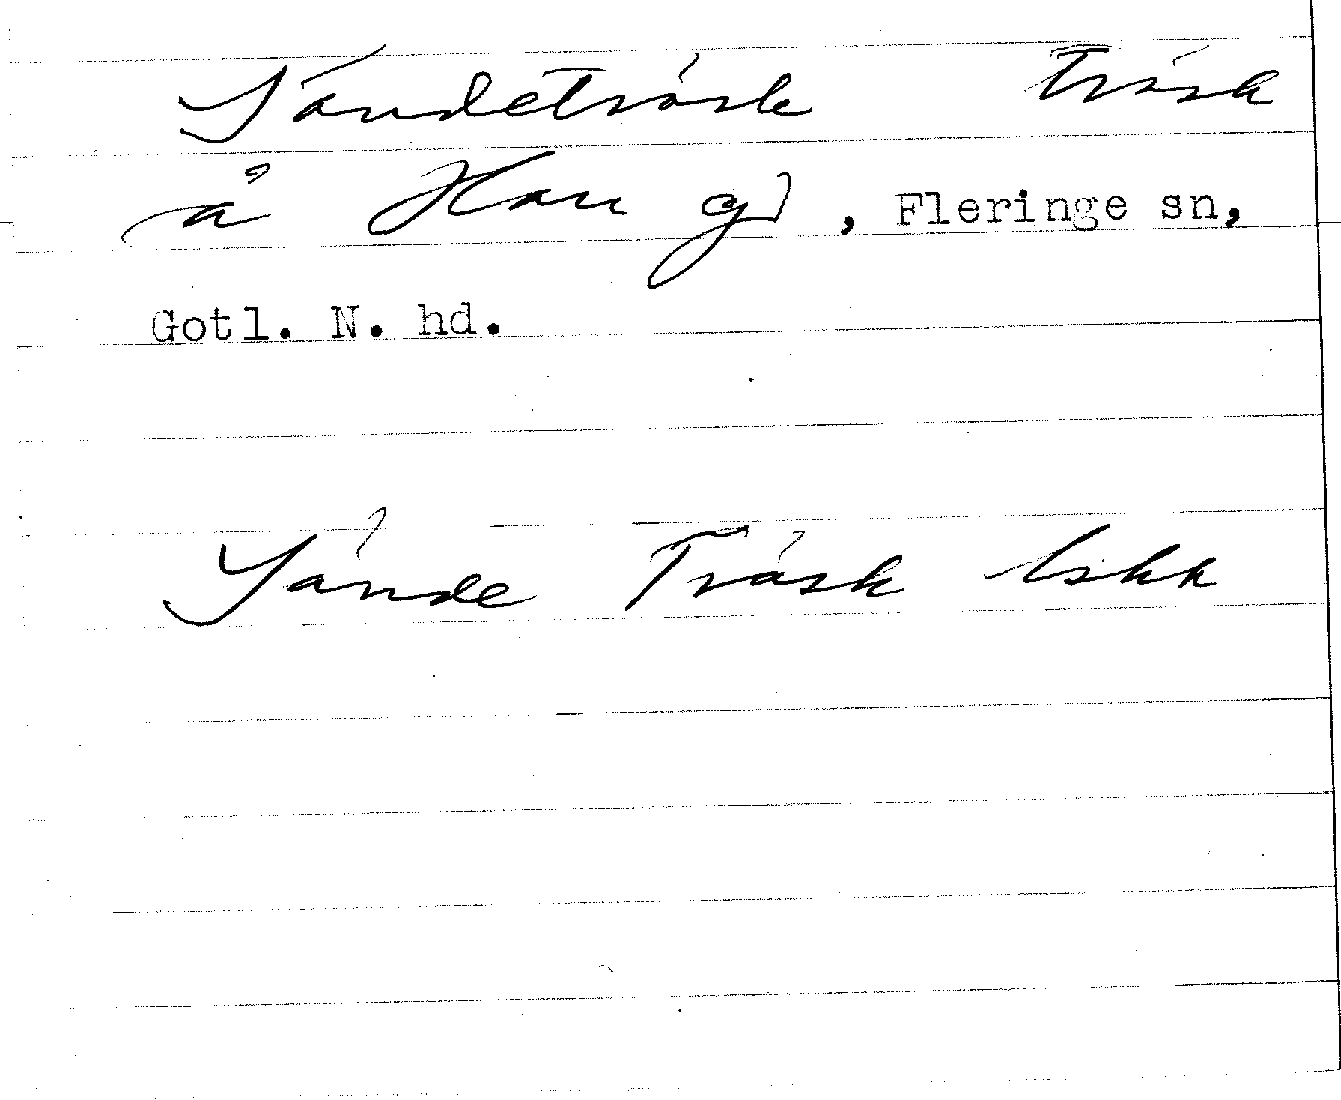 Sändeträsk träsk
å Hau gd, Fleringe sn,
Gotl. N. hd.
Sände Träsk lskk